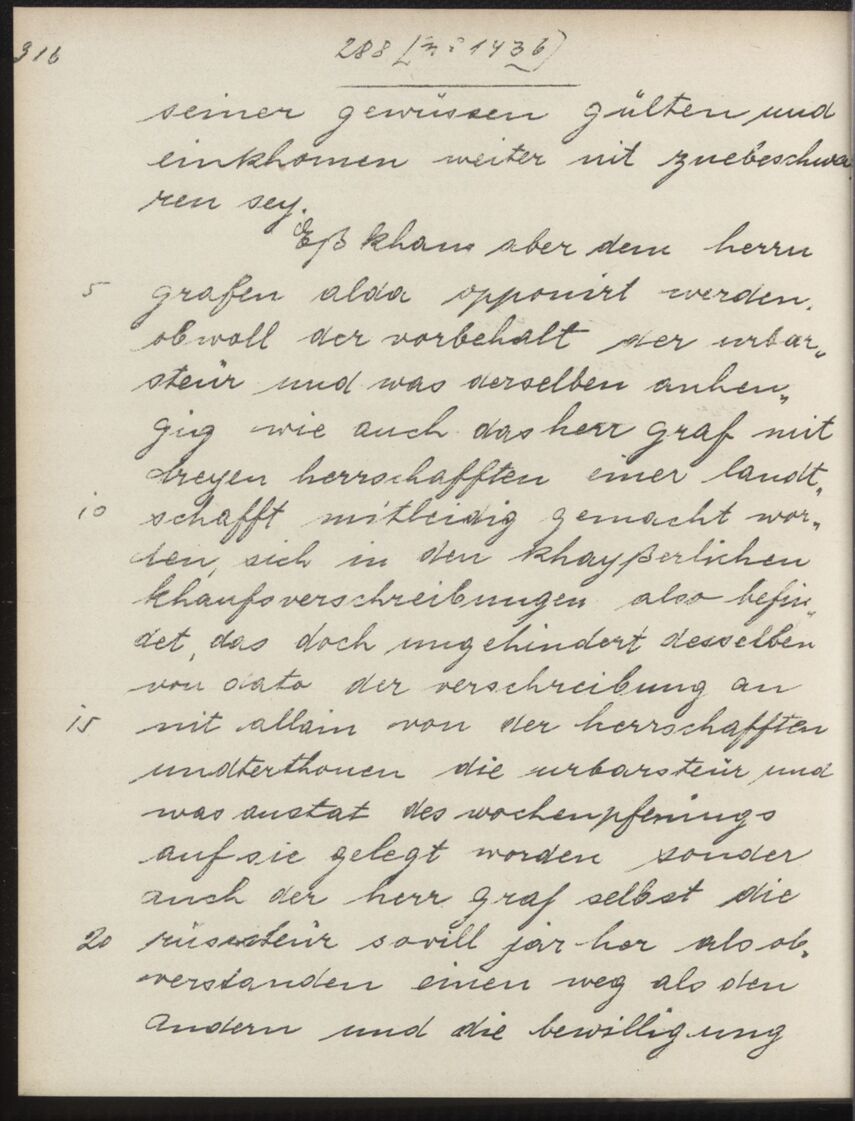 316
288 [n° 1436]
seiner gewüssen gülten und
einkhomen weiter nit zuebeschwa
ren sey.
Eß khan aber dem herrn
5 grafen alda opponirt werden,
obwoll der vorbehalt der urbar„
steür und was derselben anhen„
gig wie auch das herr graf mit
dreyen herrschafften einer landt„
10 schafft mitleidig gemacht wor„
den, sich in den khayßerlichen
khaufsverschreibungen also befin„
det, das doch ungehindert desselben
von dato der verschreibung an
15 nit allain von der herrschafften
undterthonen die urbarsteür und
was anstat des wochenpfenings
auf sie gelegt worden sonder
auch der herr graf selbst die
20 rüssteür sovill jar her als ob„
verstanden einen weg als den
andern und die bewilligung